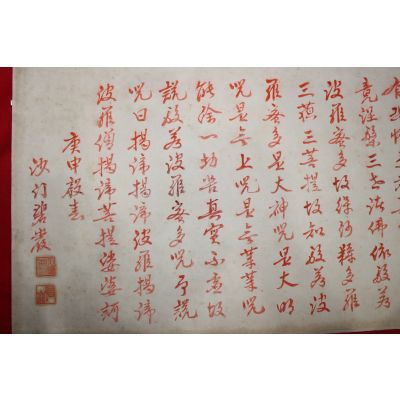 有恐怖
竟涅槃三世諸佛依般若
波羅蜜多故得阿耨多羅
三藐三菩提故知般若波
羅蜜多是大神呪是大明
呪是無上呪是無等等呪
能除一切苦真實不虛故
說般若波羅蜜多呪即說
呪曰揭諦揭諦波羅揭諦
波羅僧揭諦菩提娑婆訶
庚申
沙门碧巖